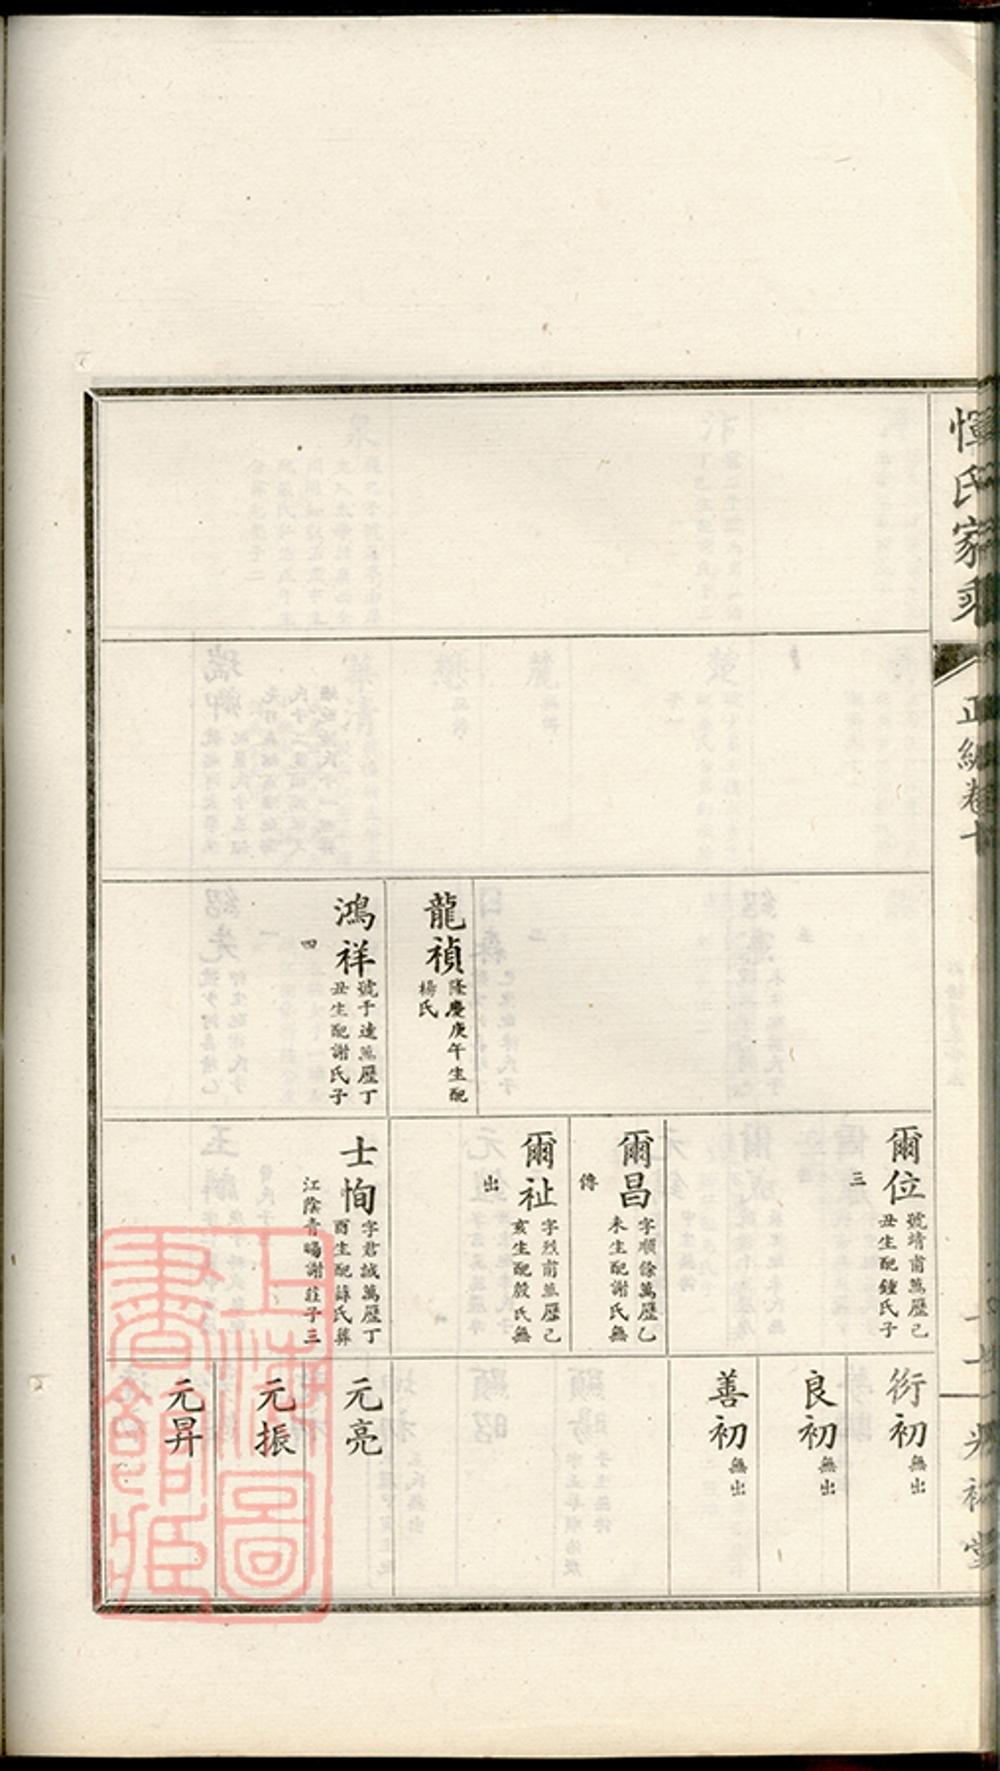 惲氏家乘
正編卷十
光裕堂
龍禎
隆慶庚午生配
楊氏
鴻祥
號于逵萬歷丁
丑生配謝氏子
四
爾位
號靖甫萬歷己
丑生配鍾氏子
三
爾昌
字順徐萬歷乙
未生配謝氏無
傳
爾祉
字烈甫萬歷己
亥生配殷氏無
出
士恂
字君誠萬歷丁
酉生配薛氏葬
江陰青暘謝莊子三
衍初
無出
良初
無出
善初
無出
元亮
元振
元昇
上海圖
書館藏